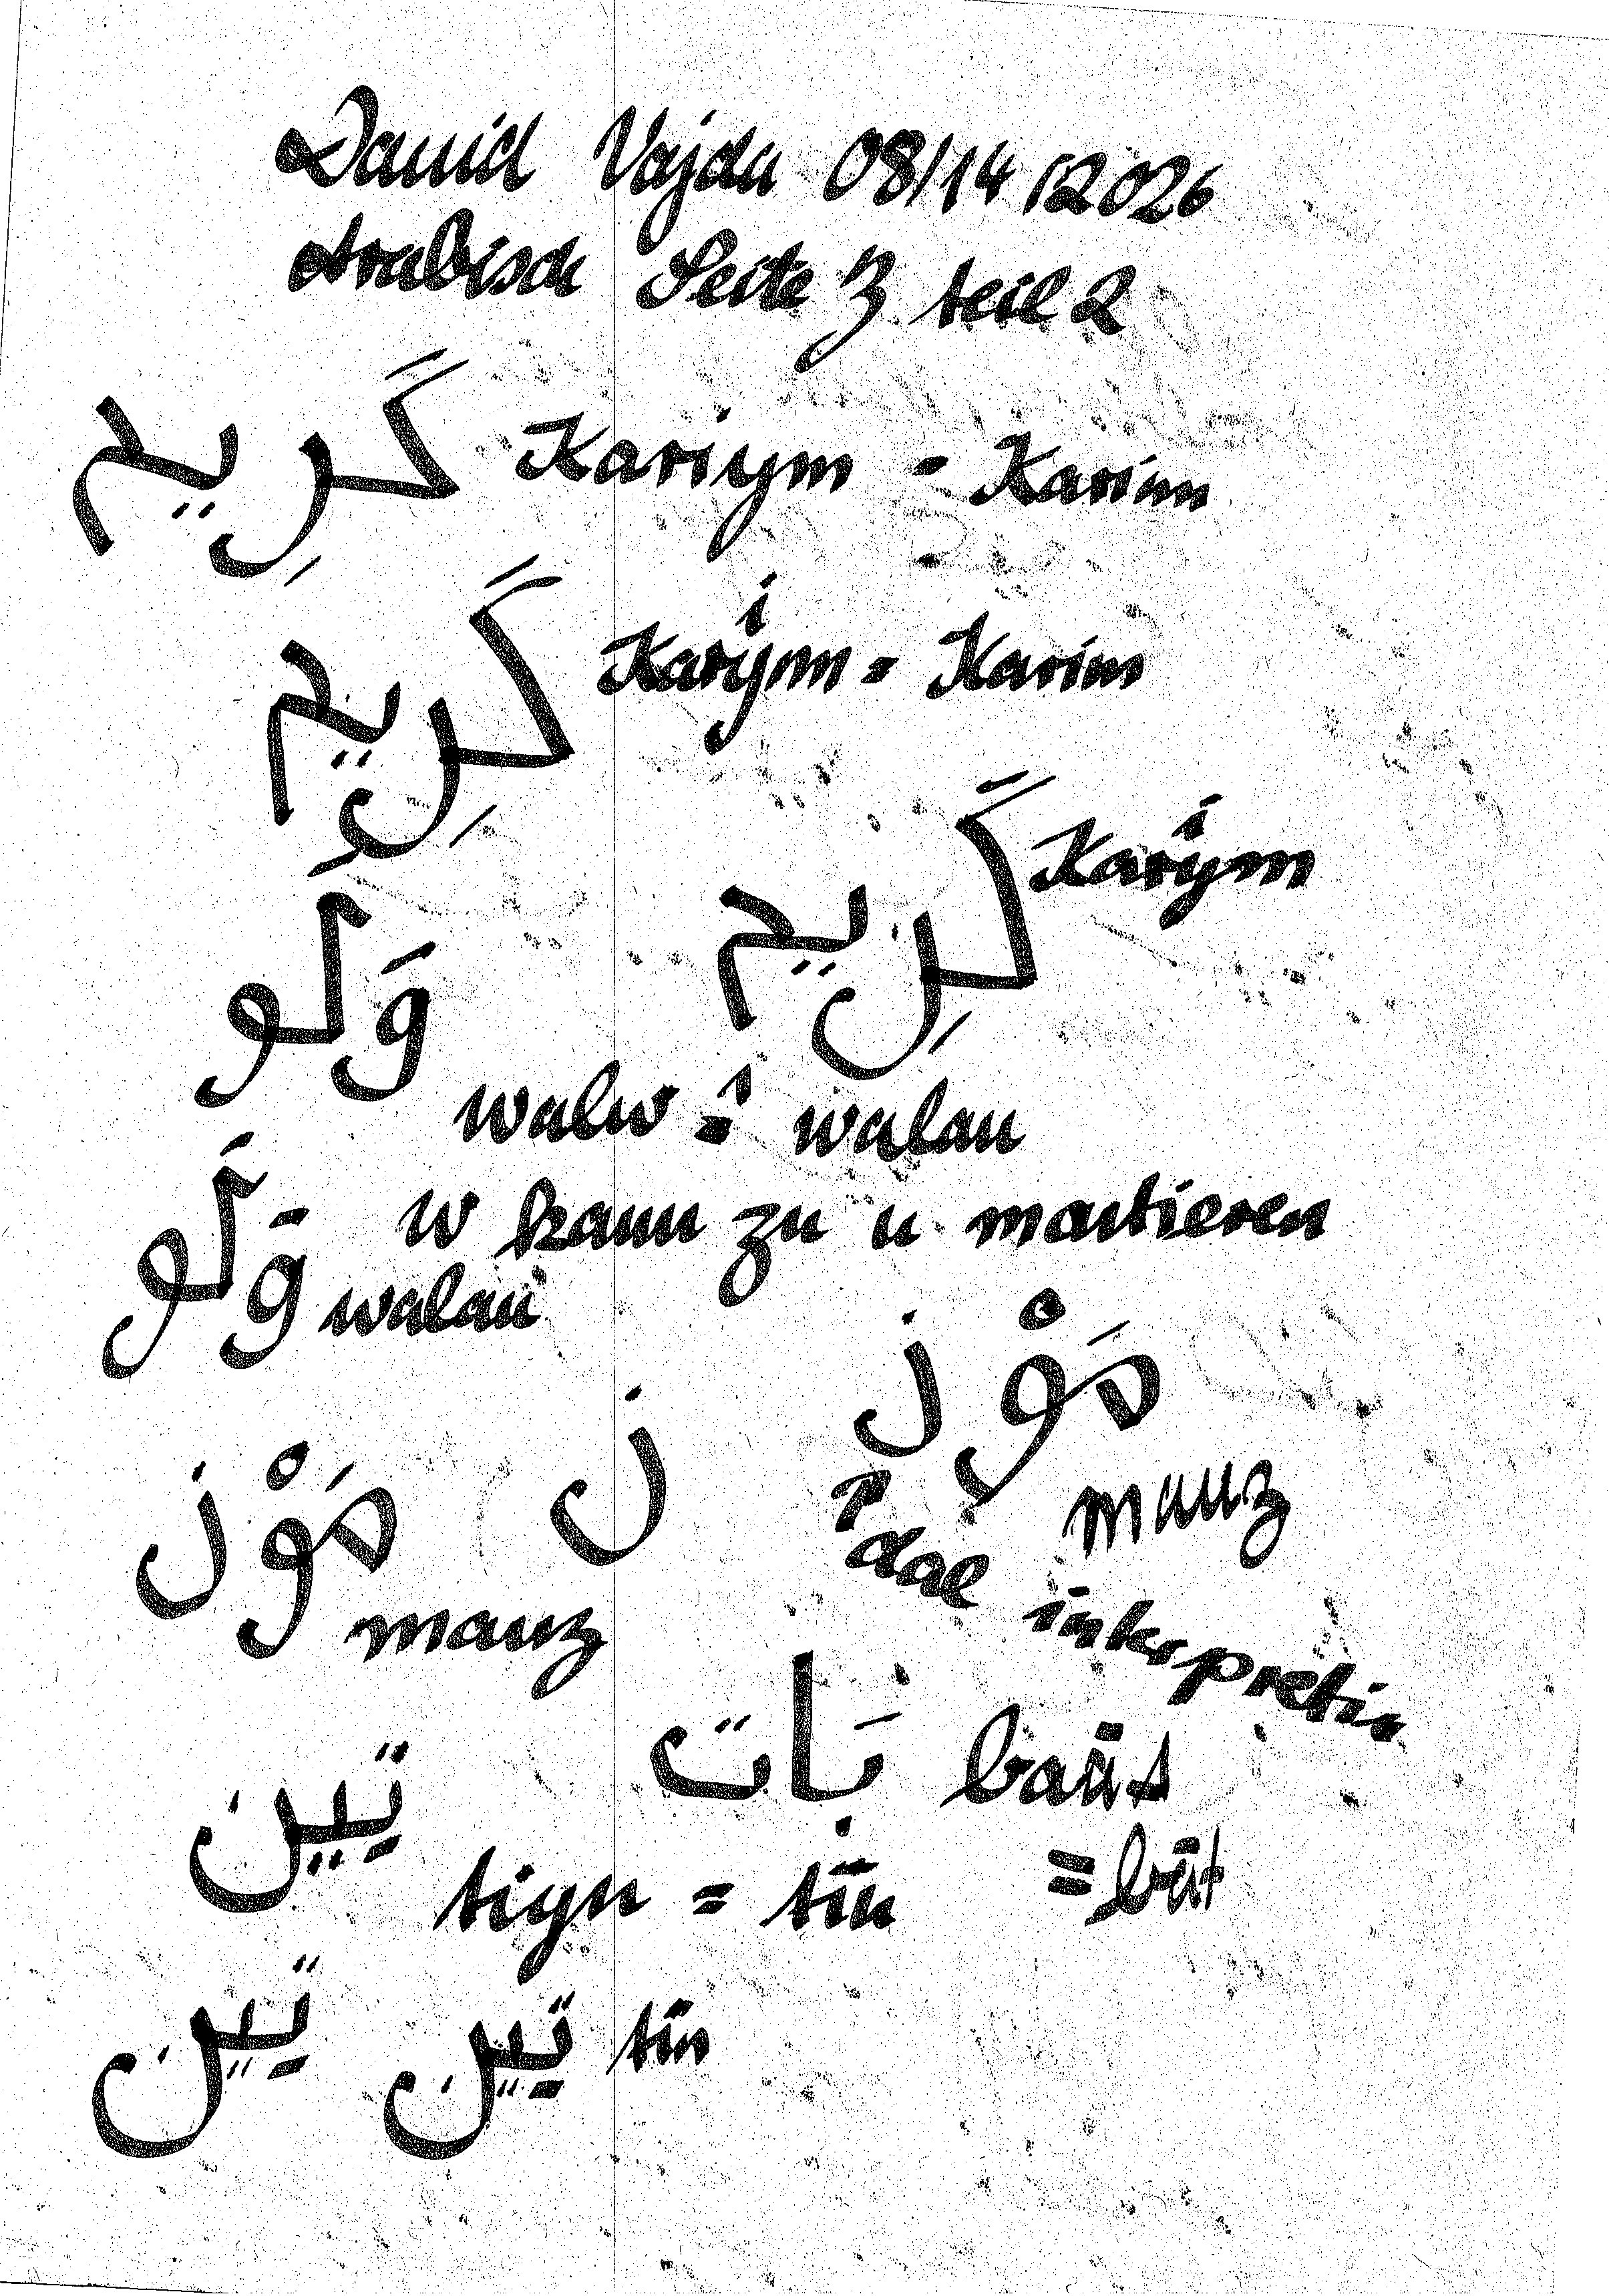 David Vajda 08/14/2026
Arabisch Seite 3 teil 2
كَرِيم Kariym - Karim
كَرِيم Kariym = Karim
كَرِيم Kariym
وَلَو
walw = walau
وَلَو w kann zu u mutieren
walau
مَوْز
ن
مَوْز mauz
dal
مَوْز mauz
بَات baat
= bāt
تِين
tiyn = tīn
تِين تِين tīn